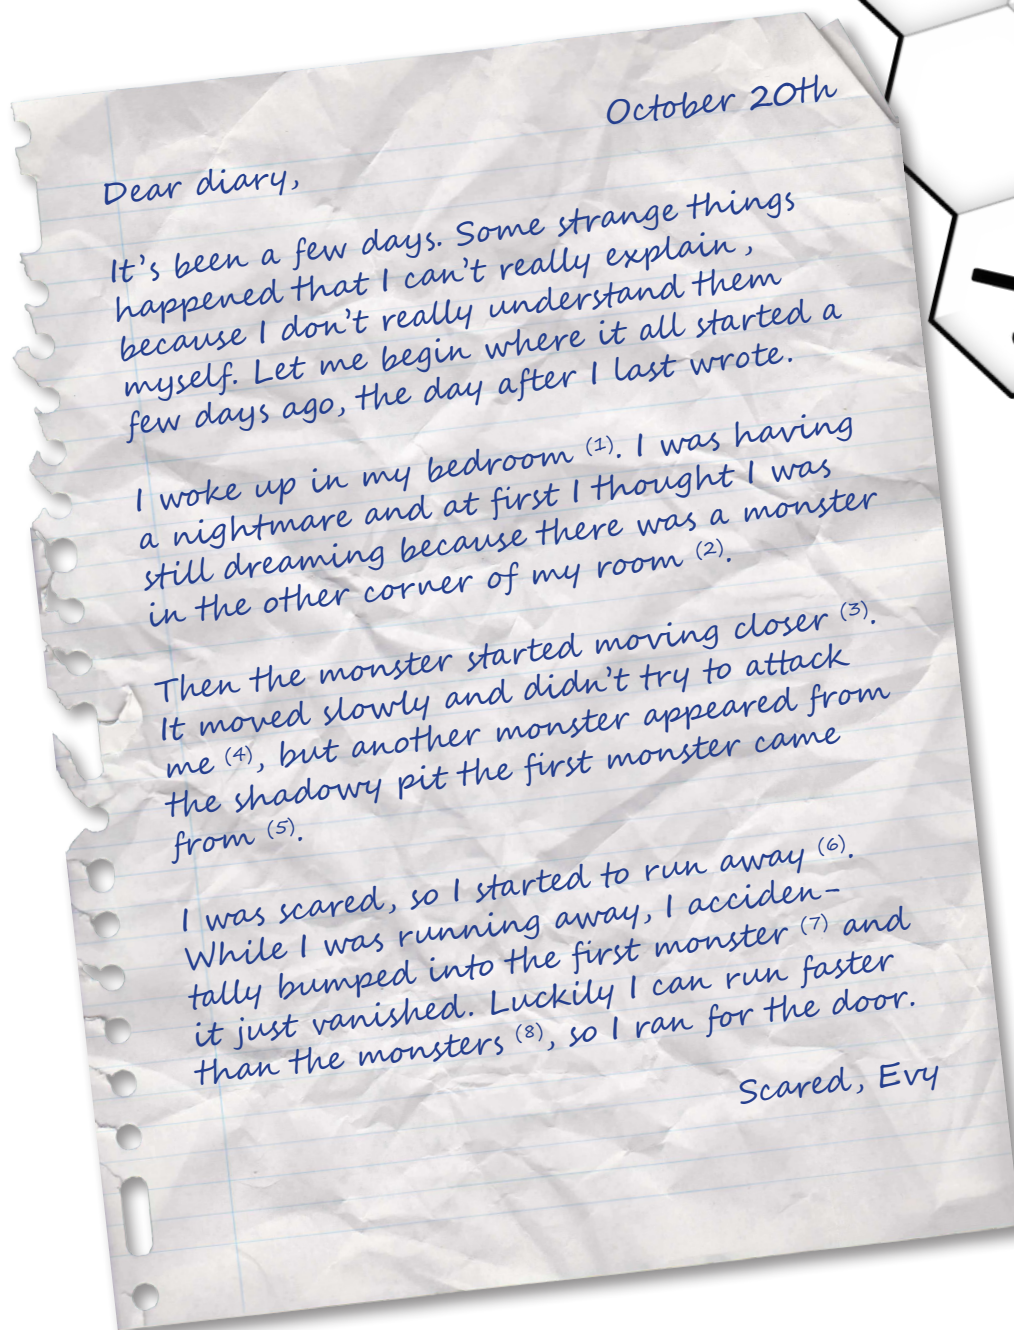 October 20th
Dear diary,
It's been a few days. Some strange things
happened that I can't really explain,
because I don't really understand them
myself. Let me begin where it all started a
few days ago, the day after I last wrote.
I woke up in my bedroom (1). I was having
a nightmare and at first I thought I was
still dreaming because there was a monster
in the other corner of my room (2).
Then the monster started moving closer (3).
It moved slowly and didn't try to attack
me (4), but another monster appeared from
the shadowy pit the first monster came
from (5).
I was scared, so I started to run away (6).
While I was running away, I acciden-
tally bumped into the first monster (7) and
it just vanished. Luckily I can run faster
than the monsters (8), so I ran for the door.
Scared, Evy